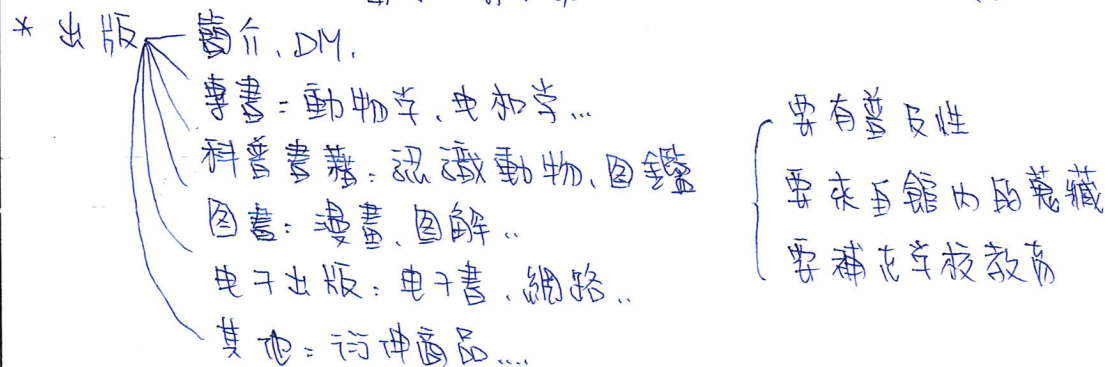 * 出版 簡介、DM、
專書：動物学、电机学…
科普書籍：認識動物、图鑑
图書：漫畫、图解..
电子出版：电子書、網路..
其他：衍伸商品....
要有普及性
要來自館內的蒐藏
要補充学校教育